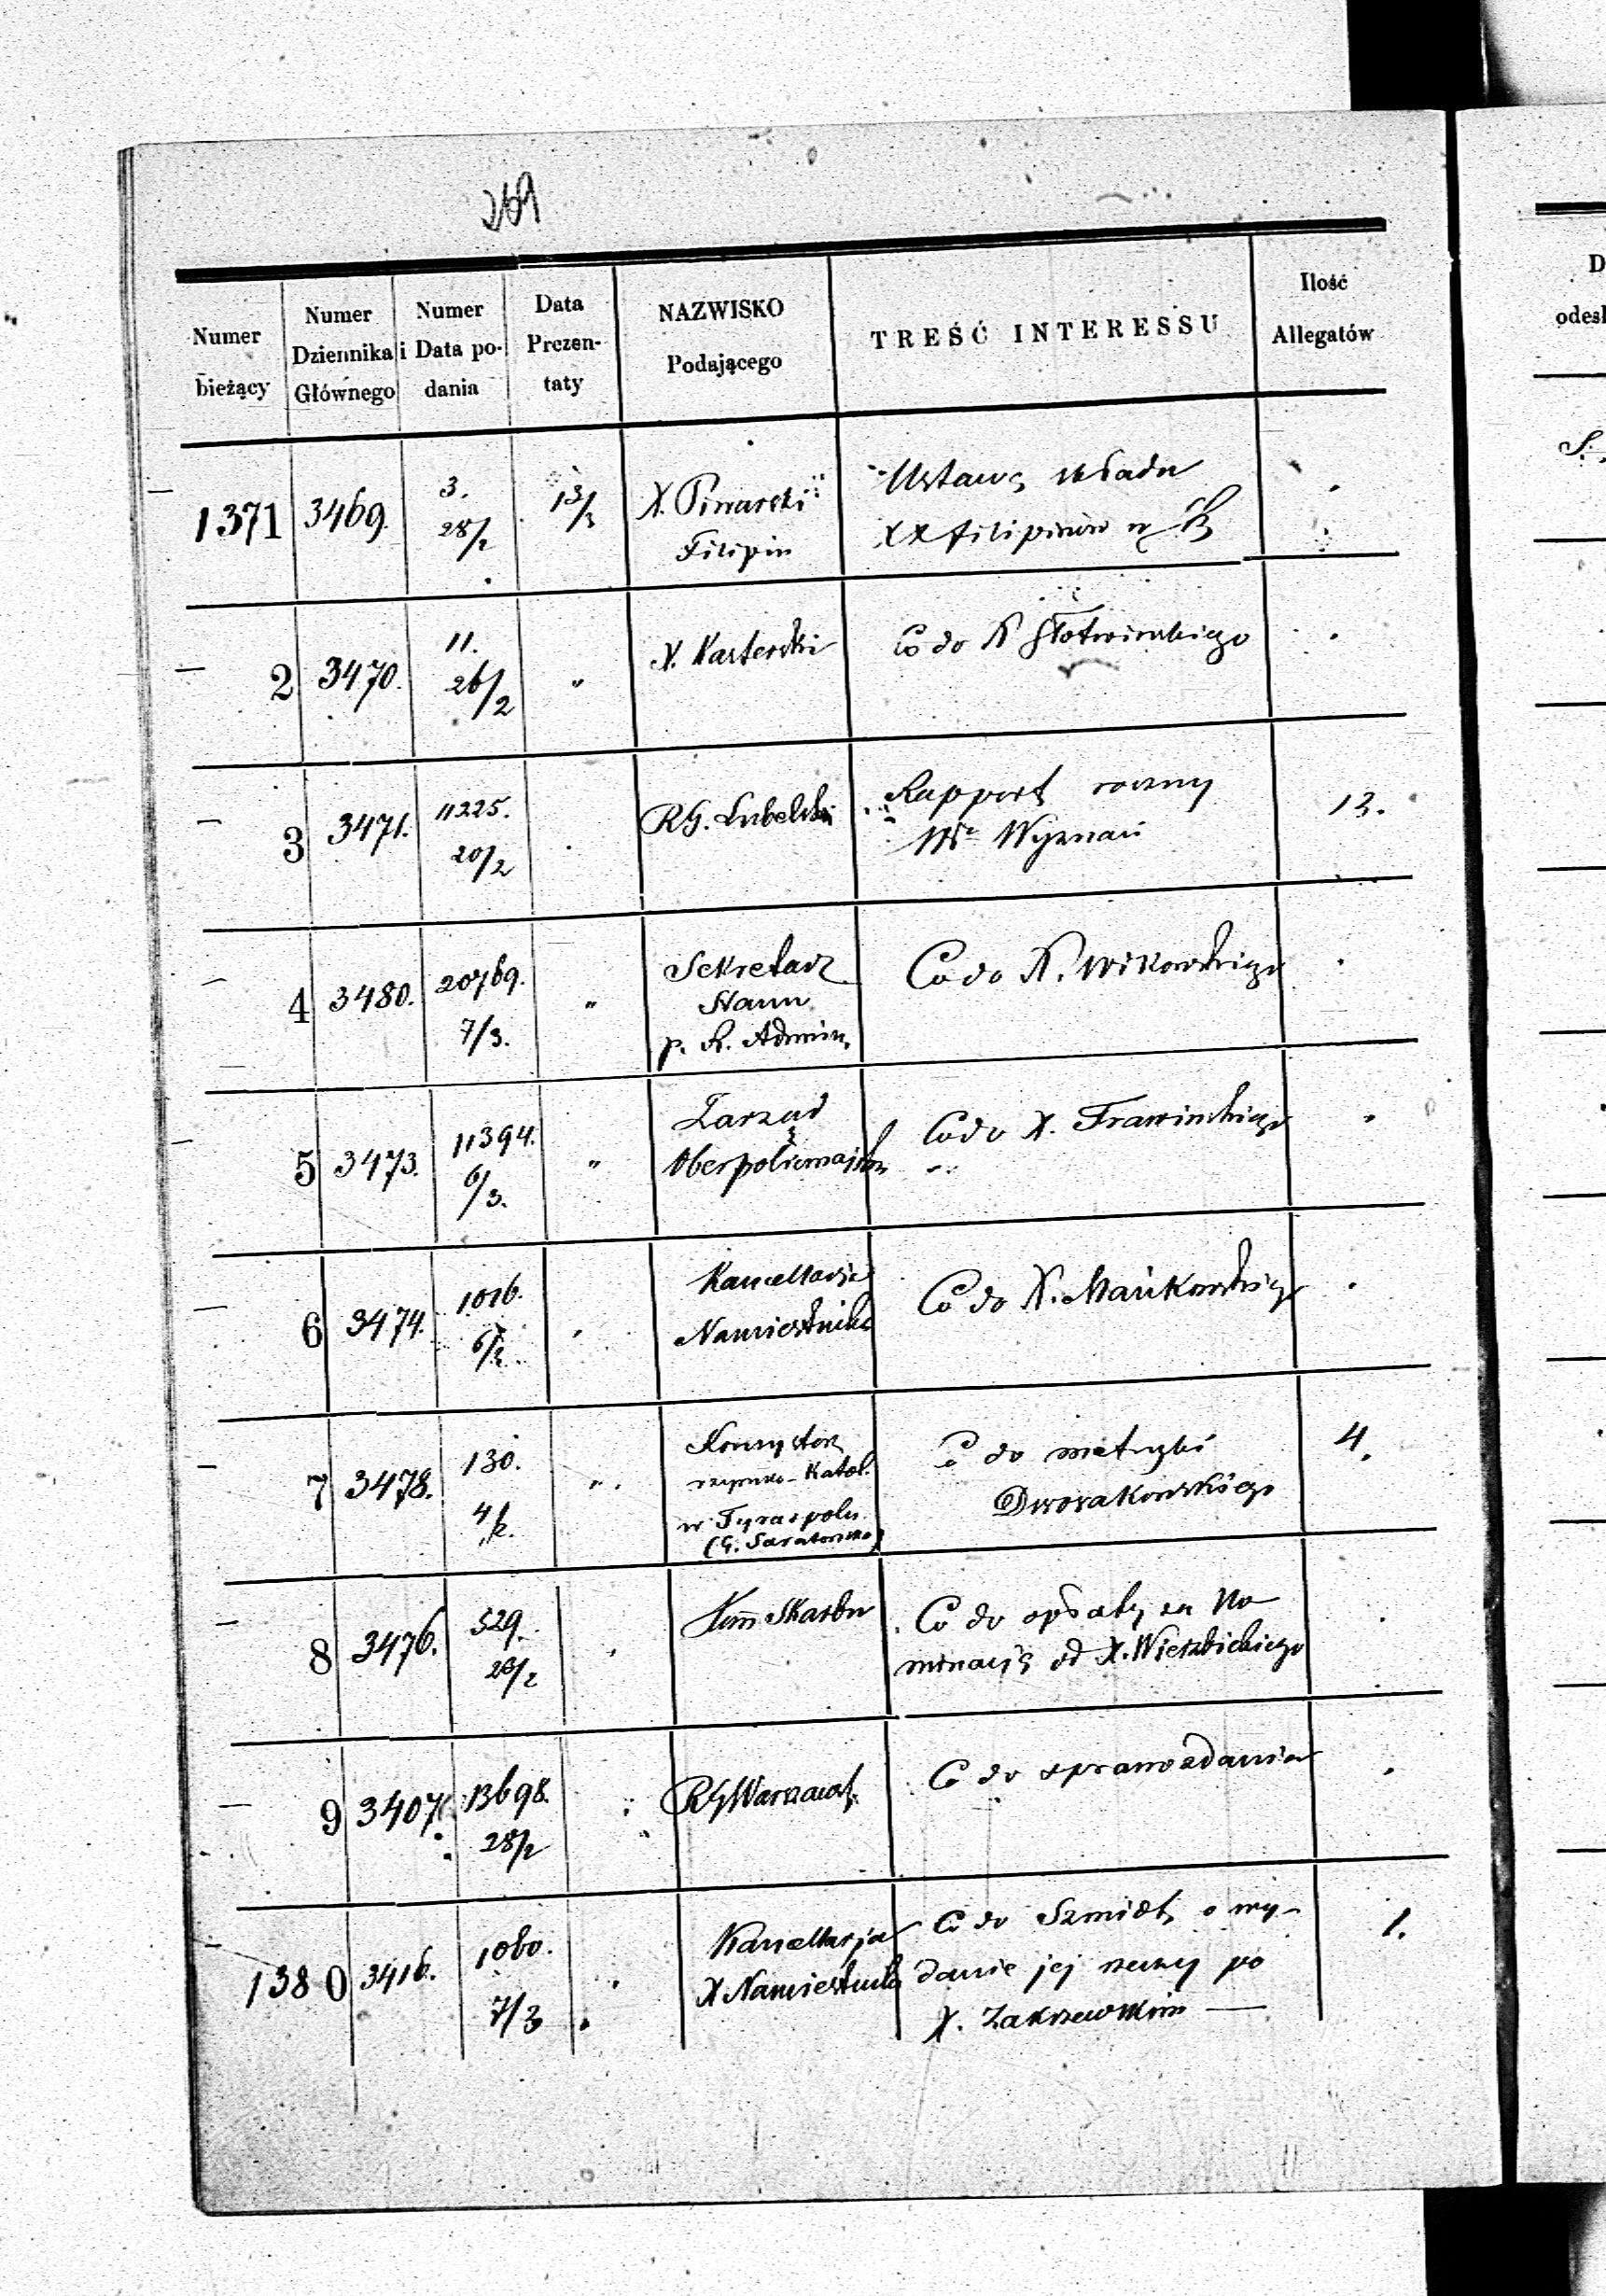 269
Numer bieżący
Numer Dziennika Głównego
Numer i Data podania
Data Prezentaty
NAZWISKO Podającego
TREŚĆ INTERESSU
Ilość Allegatów
1371 3469. 3. 28/2 13/3 X. Piwarski Filipin
XX Filipinów w
2 3470. 11. 26/2 " X. Kasterski Co do X Słotwińskiego
3 3471. 11225. 20/2 RG. Lubelski Rapport roczny
Wyznań 13.
4 3480. 20769. 7/3. " Sekretarz
Stanu
p. R. Admin. Co do X. Wikowskiego
5 3473. 11394. 6/3. " Zarząd
Oberpolicmajstra Co do X. Trawińskiego
6 3474. 1016. Kancellarja
Namiestnika Co do X. Mańkowskiego
7 3478. 130. 4/2. " Konsystorz
rzymsko-Katol.
w Tyraspolu
(G. Saratowska) Co do metryki
Dworakowskiego 4.
8 3476. 529. Kom Skarbu Co do opłaty za No-
minacją od X. Wierzbickiego
9 3407. 13698. 28/2 RG Warszaws. Co do sprawozdania
1380 3416. 1060. 7/3 Kancellarja
X Namiestnika Co do Szmidt, o wy-
danie jej rzeczy po
X. Zakrzewskim —
1.
D
odesł